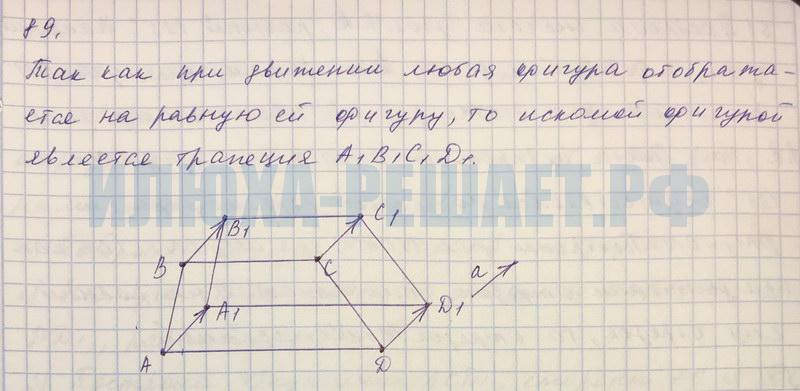 89.
Так как при движении любая фигура отобража-
ется на равную ей фигуру, то искомой фигурой
является трапеция A₁B₁C₁D₁.
ИЛЮХА-РЕШАЕТ.РФ
C₁
B₁
B
C
a
A₁
D₁
A
D